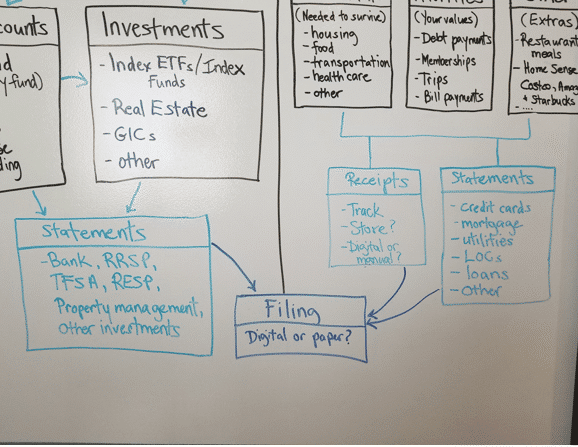 counts
y-fund)
ding
Investments
- Index ETFs/Index
Funds
- Real Estate
- GICs
- other
(Needed to survive)
- housing
- food
- transportation
- healthcare
- other
(Your values)
- Debt payments
- Memberships
- Trips
- Bill payments
(Extras)
- Restaurant
meals
- Home Sense
Costco, Amaz
& Starbucks
- ....
Statements
- Bank, RRSP,
TFSA, RESP,
Property management,
Other investments
Receipts
- Track
- Store?
- Digital or
manual?
Statements
- credit cards
- mortgage
- utilities
- LOCs
- loans
- Other
Filing
Digital or paper?